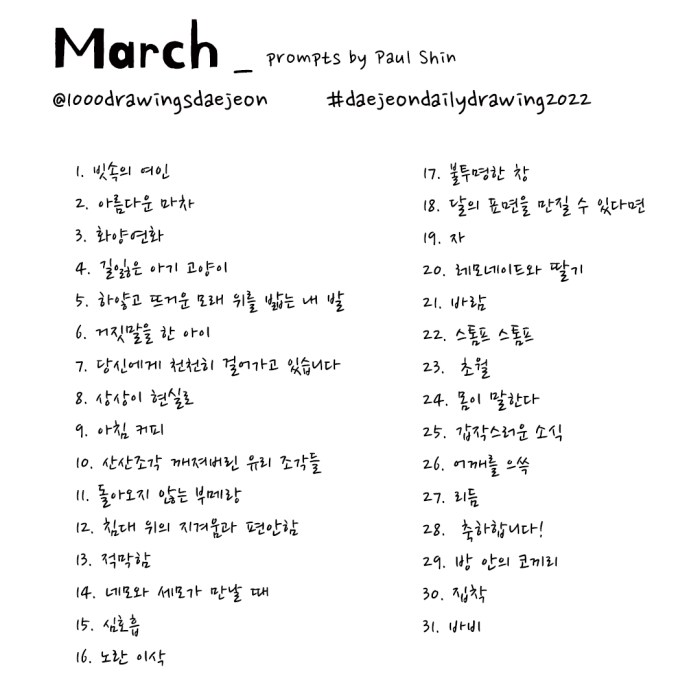 March _ prompts by Paul Shin
@1000drawingsdaejeon #daejeondailydrawing2022
1. 빗속의 여인
2. 아름다운 마차
3. 화양연화
4. 길잃은 아기 고양이
5. 하얗고 뜨거운 모래 위를 밟는 내 발
6. 거짓말을 한 아이
7. 당신에게 천천히 걸어가고 있습니다
8. 상상이 현실로
9. 아침 커피
10. 산산조각 깨져버린 유리 조각들
11. 돌아오지 않는 부메랑
12. 침대 위의 지겨움과 편안함
13. 적막함
14. 네모와 세모가 만날 때
15. 심호흡
16. 노란 이삭
17. 불투명한 창
18. 달의 표면을 만질 수 있다면
19. 자
20. 레모네이드와 딸기
21. 바람
22. 스톰프 스톰프
23. 초월
24. 몸이 말한다
25. 갑작스러운 소식
26. 어깨를 으쓱
27. 리듬
28. 축하합니다!
29. 방 안의 코끼리
30. 집착
31. 바비